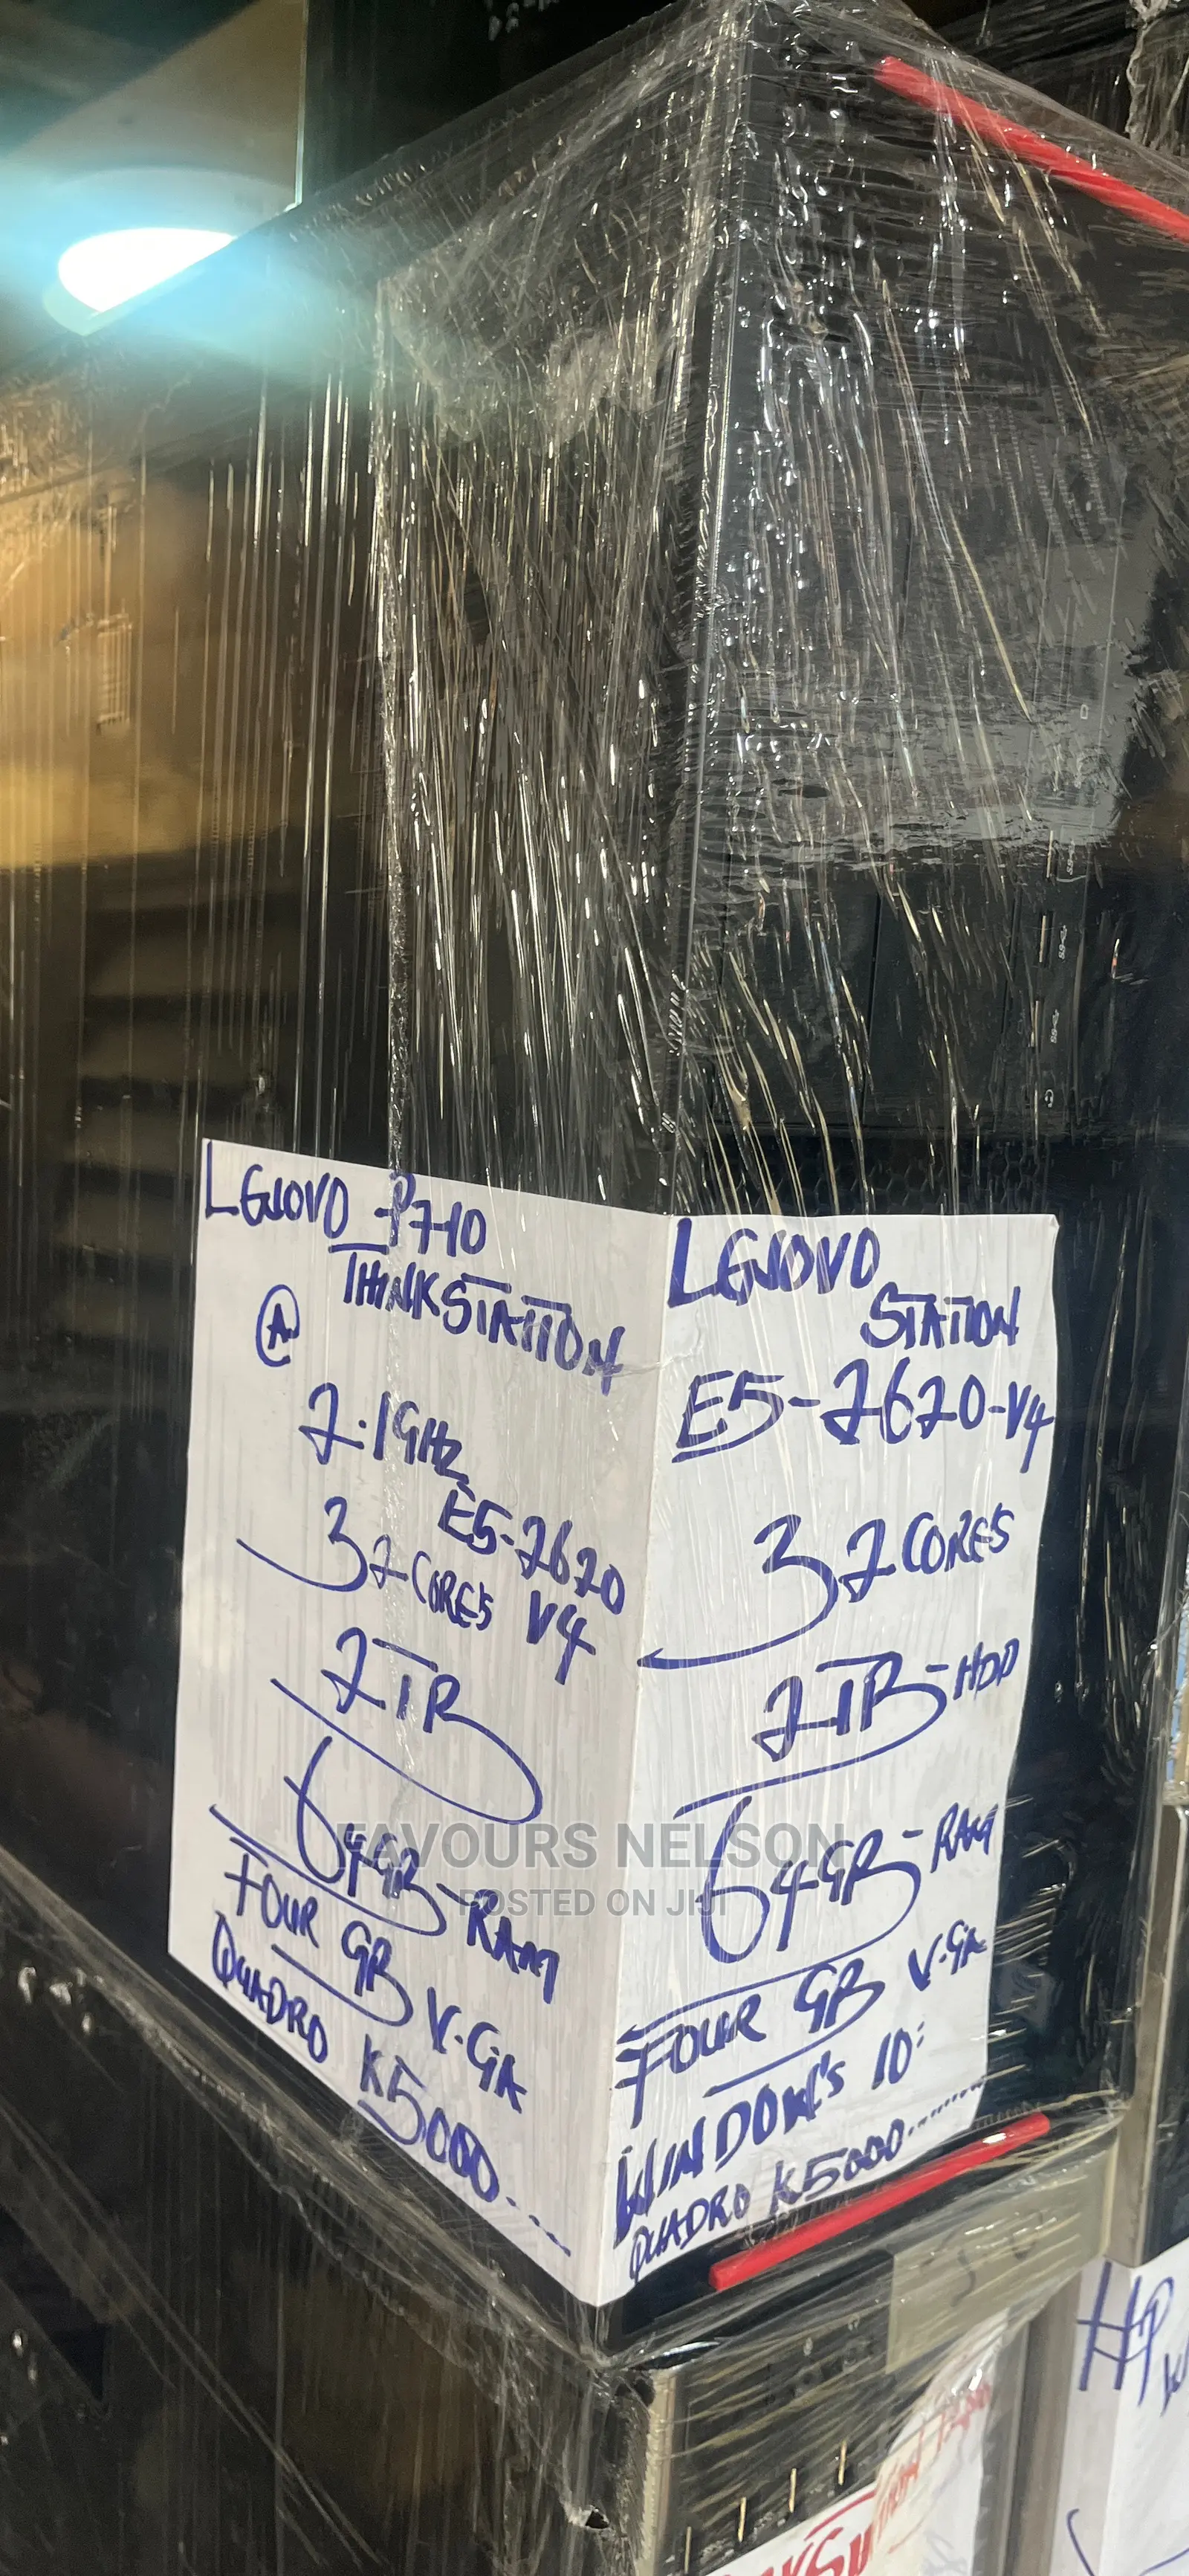 LENOVO P710
THINKSTATION
A
2.1GHz
E5-2620
32 CORES V4
2TB
64GB-RAM
FOUR GB V.GA
QUADRO K5000...
LENOVO
STATION
E5-2620-V4
32 CORES
2TB-HDD
64GB-RAM
FOUR GB V.GA
WINDOW'S 10:
QUADRO K5000........
FAVOURS NELSON
POSTED ON JIJI
HP